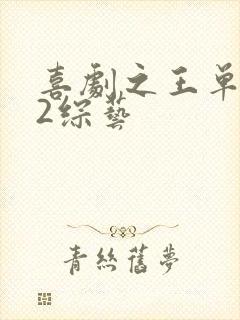 喜劇之王单
2综藝
青絲舊夢